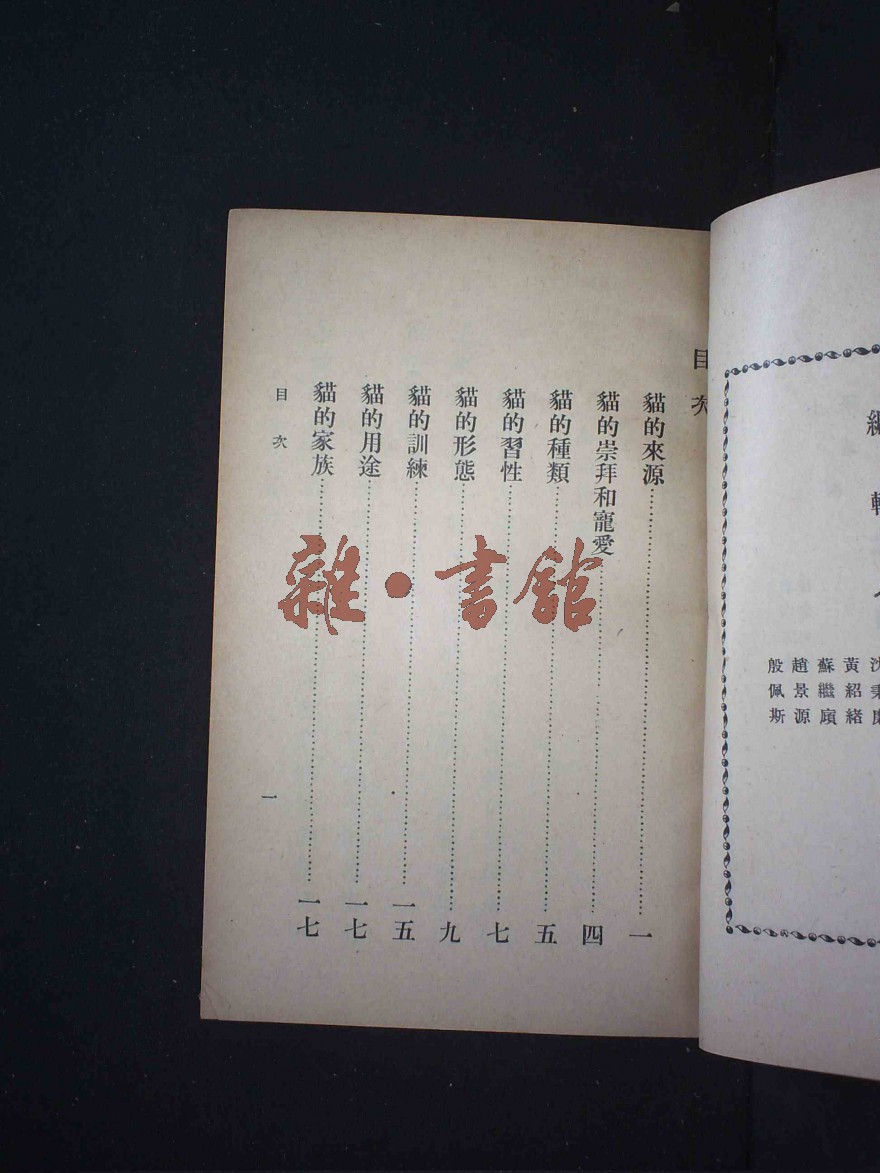 黃紹緒
蘇繼廎
趙景源
殷佩斯
目次
貓的來源……一
貓的崇拜和寵愛……四
貓的種類……五
貓的習性……七
貓的形態……九
貓的訓練……一五
貓的用途……一七
貓的家族……一七
目次
一
雜·書館